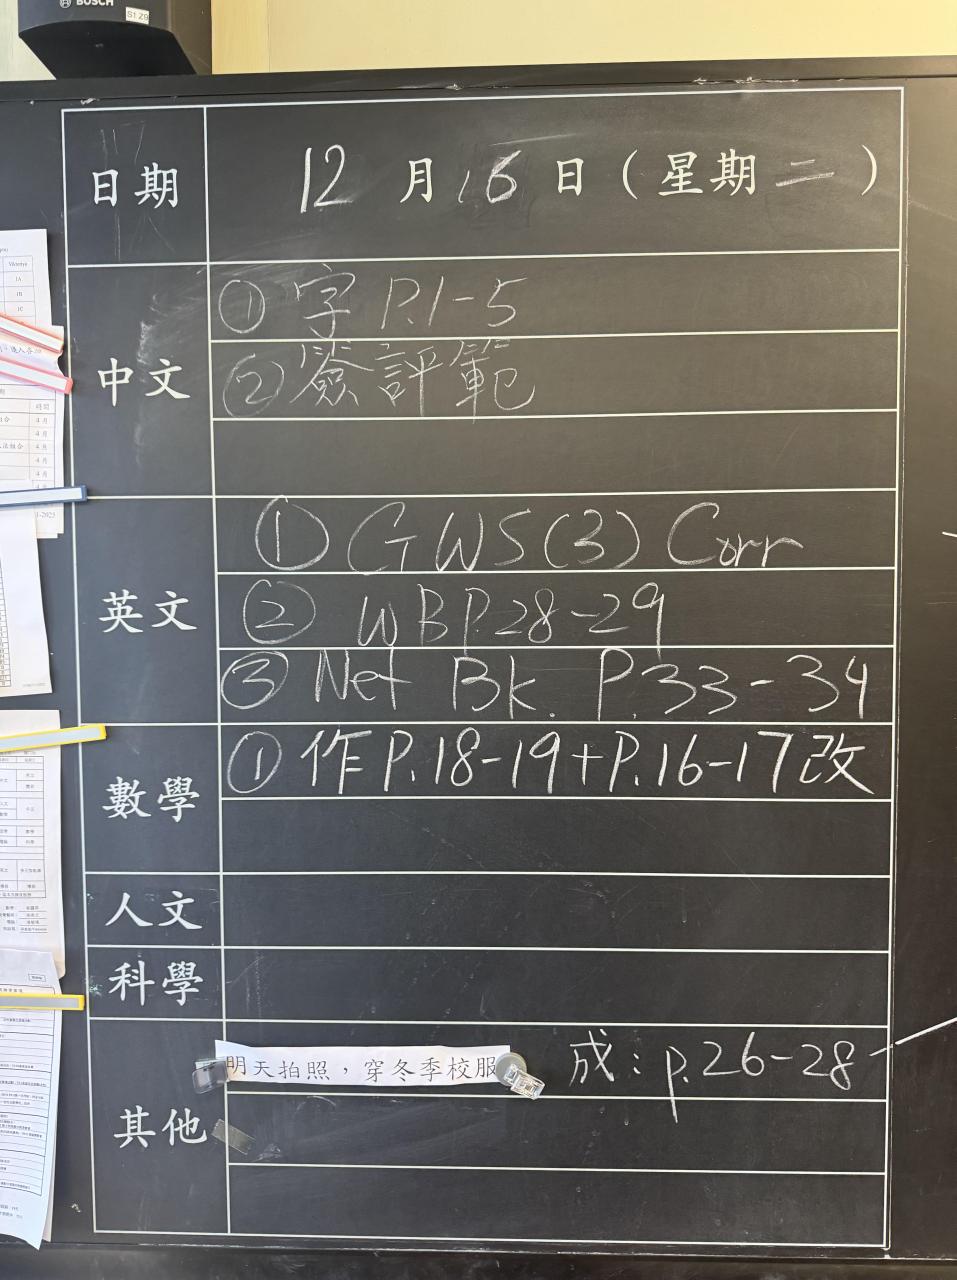 BOSCH
S1.Z9
日期 12月16日(星期二)
中文 ① 字 P.1-5
② 簽評範
英文 ① GWS(3) Corr
② WB P.28-29
③ Net Bk. P.33-34
數學 ① 作P.18-19+P.16-17改
人文
科學
其他 明天拍照，穿冬季校服 成：p.26-28